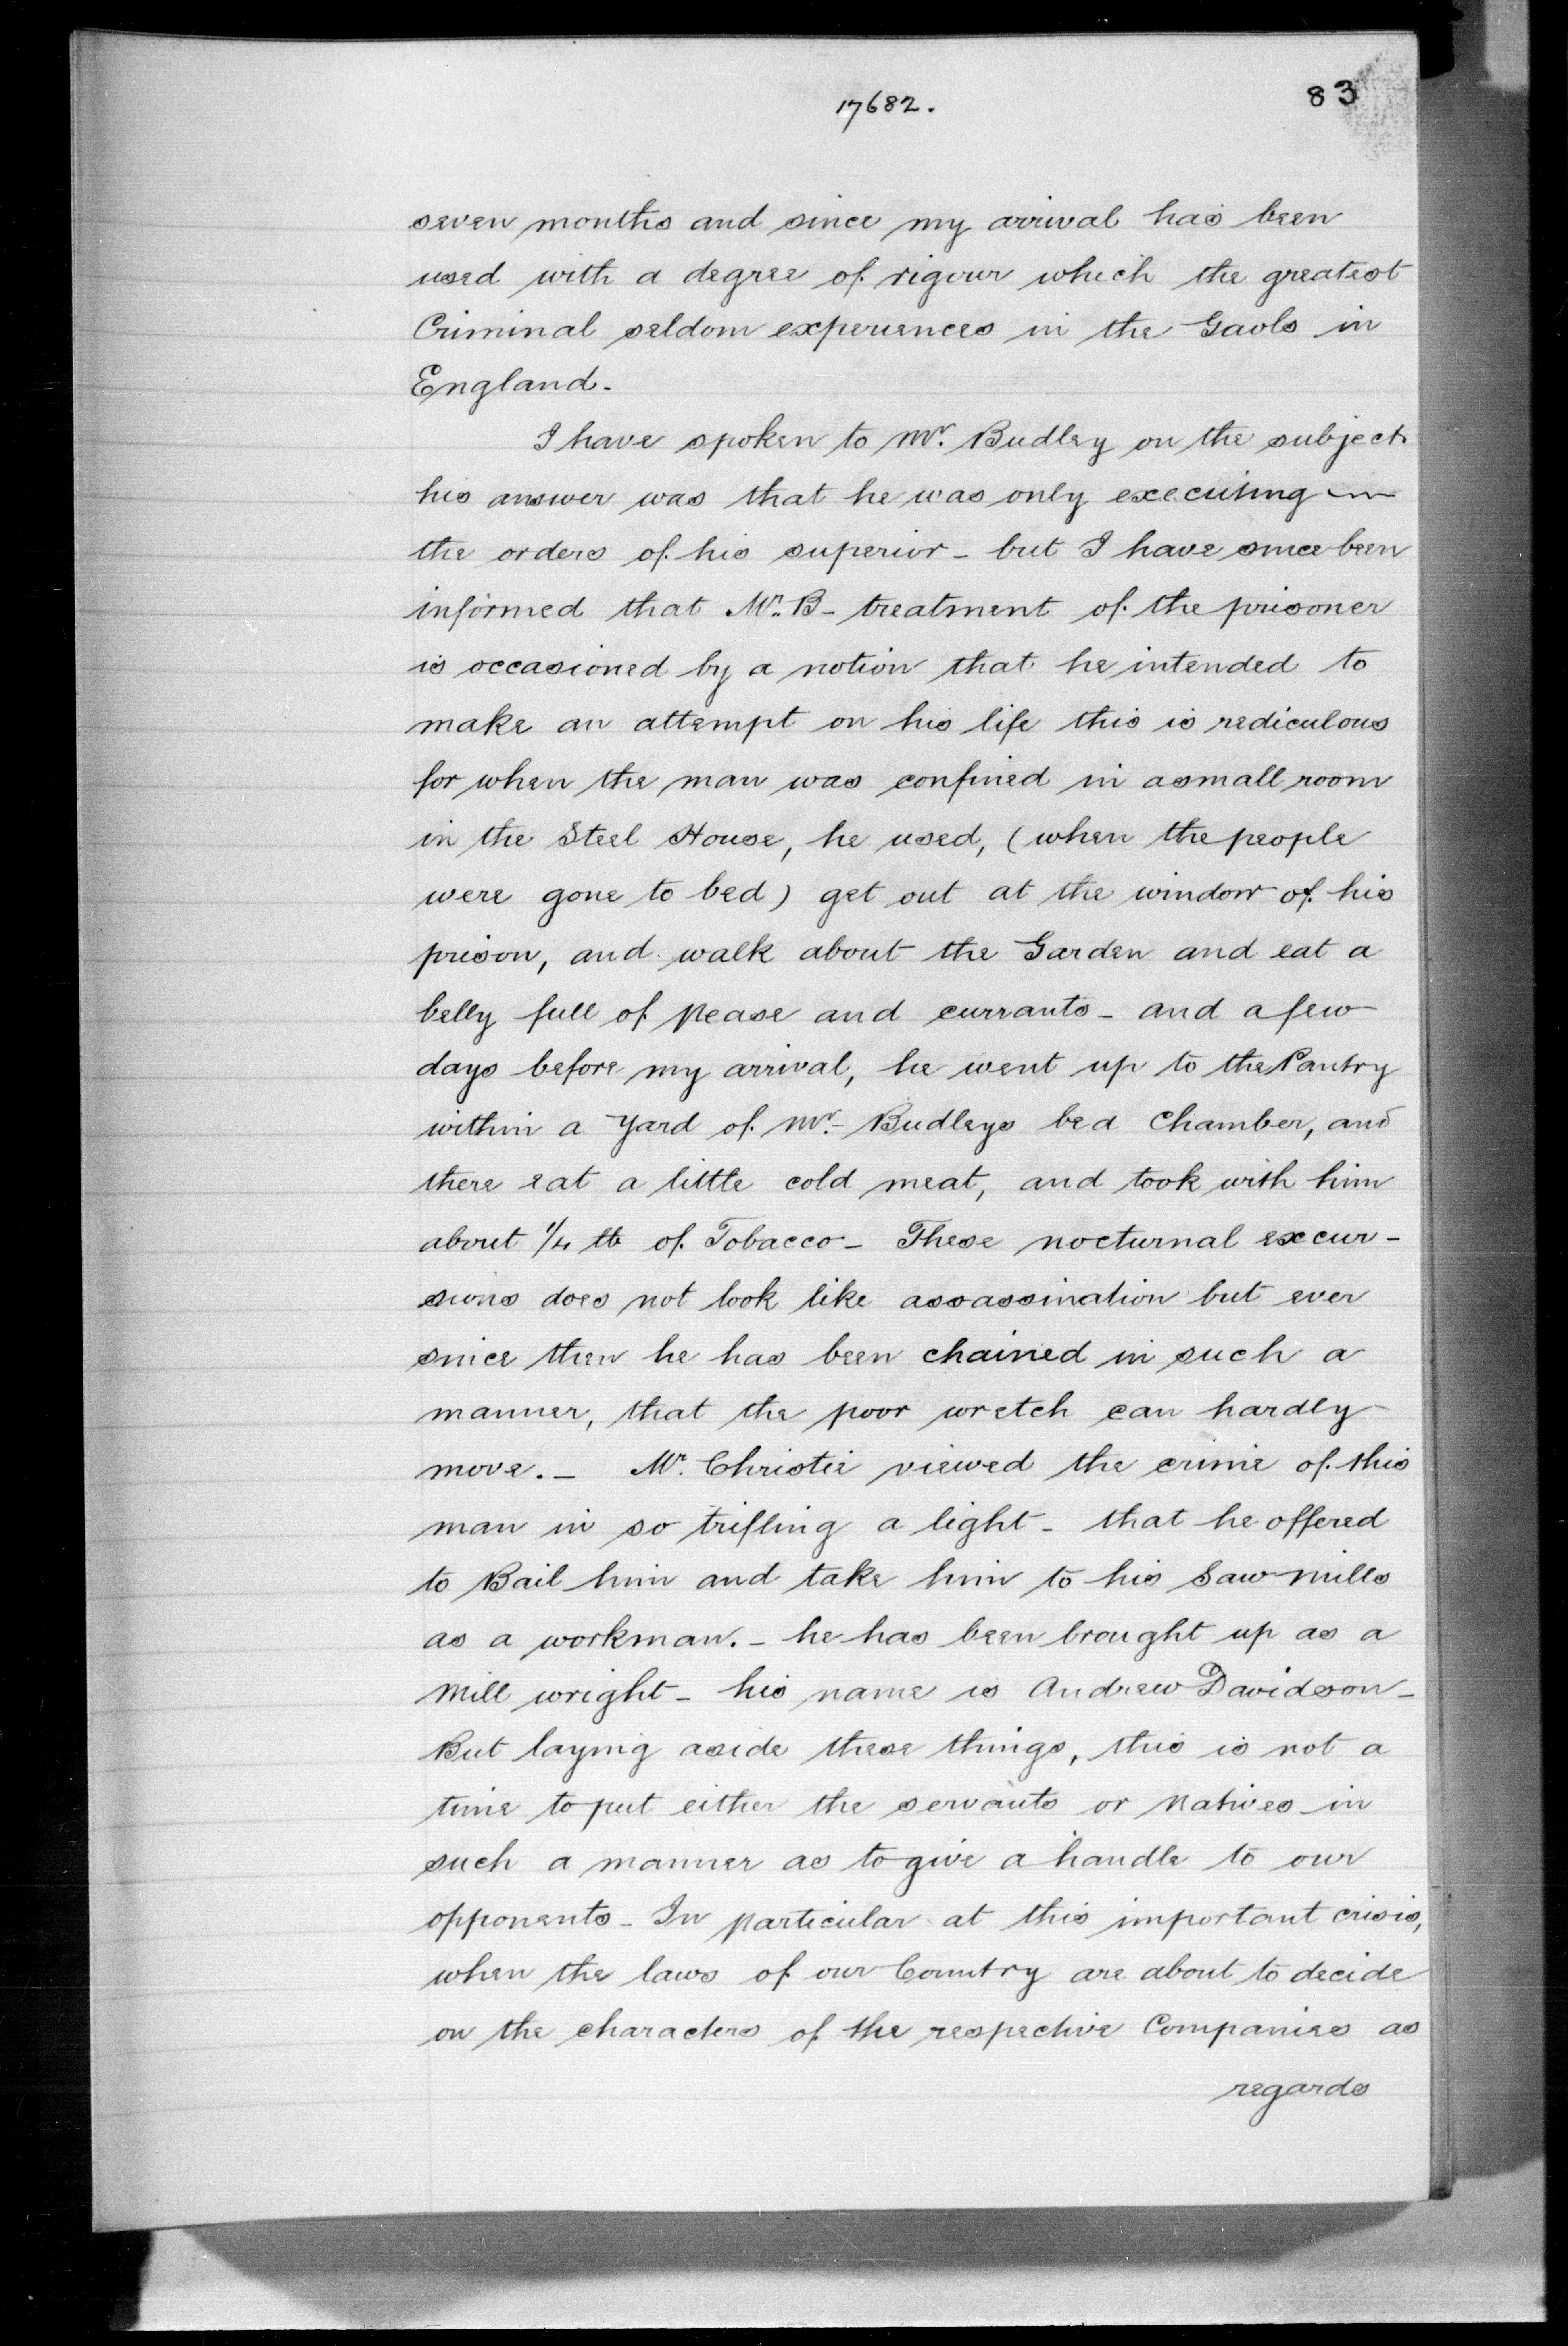 17682.
83
seven months and since my arrival has been
used with a degree of rigour which the greatest
Criminal seldom experiences in the Gaols in
England.
I have spoken to Mr. Budley on the subject
his answer was that he was only executing
the orders of his superior - but I have since been
informed that Mr. B- treatment of the prisoner
is occasioned by a notion that he intended to
make an attempt on his life this is rediculous
for when the man was confined in a small room
in the Steel House, he used, (when the people
were gone to bed) get out at the window of his
prison, and walk about the Garden and eat a
belly full of pease and currants - and a few
days before my arrival, he went up to the Pantry
within a Yard of Mr. Budleys bed Chamber, and
there eat a little cold meat, and took with him
about 1/4 lb of Tobacco - These nocturnal excur-
sions does not look like assassination but ever
since then he has been chained in such a
manner, that the poor wretch can hardly
move. - Mr. Christie viewed the crime of this
man in so trifling a light - that he offered
to Bail him and take him to his Saw mills
as a workman. - he has been brought up as a
Mill wright - his name is Andrew Davidson -
But laying aside these things, this is not a
time to put either the servants or Natives in
such a manner as to give a handle to our
opponents - In particular at this important crisis,
when the laws of our Country are about to decide
on the characters of the respective Companies as
regards